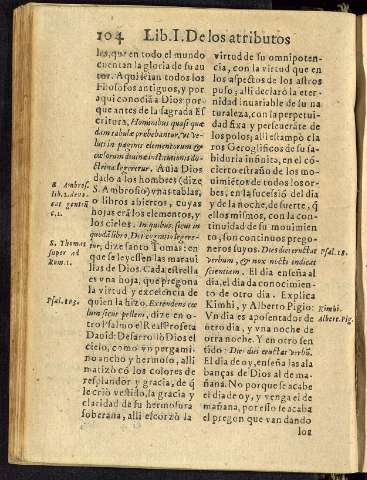 104 Lib. I. De los atributos
les, que en todo el mundo
cuentan la gloria de su au
tor. Aqui leian todos los
Filosofos antiguos, y por
aqui conociã a Dios por
que antes de la sagrada Es
critura, Hominibus quasi que
dam tabulæ præbebantur, vt ve
lut in paginis elementorum &
cælorum diuinæ institutionis do
ctrina legeretur. Auia Dios
dado a los hombres (dize
S. Ambrosio) vnas tablas,
o libros abiertos, cuyas
hojas erã los elementos, y
los cielos. In quibus, sicut in
quodã libro, Dei cognitio legere
tur, dize santo Tomas: en
que se leyessen las maraui
llas de Dios. Cada estrella
es vna hoja, que pregona
la virtud y excelencia de
quien la hizo. Extendens cæ
lum sicut pellem, dize en o
tro Psalmo el Real Profeta
Dauid: Desarrolló Dios el
cielo, como vn pergami-
no ancho y hermoso, alli
matizó los colores de
resplandor y gracia, de q̃
le crió vestido, la gracia y
claridad de su hermosura
soberana, alli esforzó la
B. Ambros.
lib. 2. de vo
cat. gentiũ
c. 1.
S. Thomas
super ad
Rom. 1.
Psal. 103.
virtud de su omnipoten-
cia, con la virtud que en
los aspectos de los astros
puso; alli declaró la eter-
nidad inuariable de su na
turaleza, con la perpetui-
dad fixa y perseuerãte de
los polos; alli estampò cla
ros Geroglificos de su sa-
biduria infinita, en el có-
cierto estraño de los mo-
uimiẽtos de todos los or
bes, en la sucessió del dia
y de la noche, de suerte, q̃
ellos mismos, con la conti-
nuidad de su mouimien-
to, son continuos prego-
neros suyos. Dies diei eructat
verbum, & nox nocti indicat
scientiam. El dia enseña al
dia, el dia da conocimien-
to de otro dia. Explica
Kimhi, y Alberto Pigio:
Vn dia es aposentador de
otro dia, y vna noche de
otra noche. Y en otro sen
tido: Dies diei eructat verbũ.
El dia de oy, enseña las ala
banças de Dios al de ma-
ñana. No porque se acabe
el dia de oy, y venga el de
mañana, por esso se acaba
el pregon que van dando
los
Psal. 18.
Kimhi.
Albert. Pig.